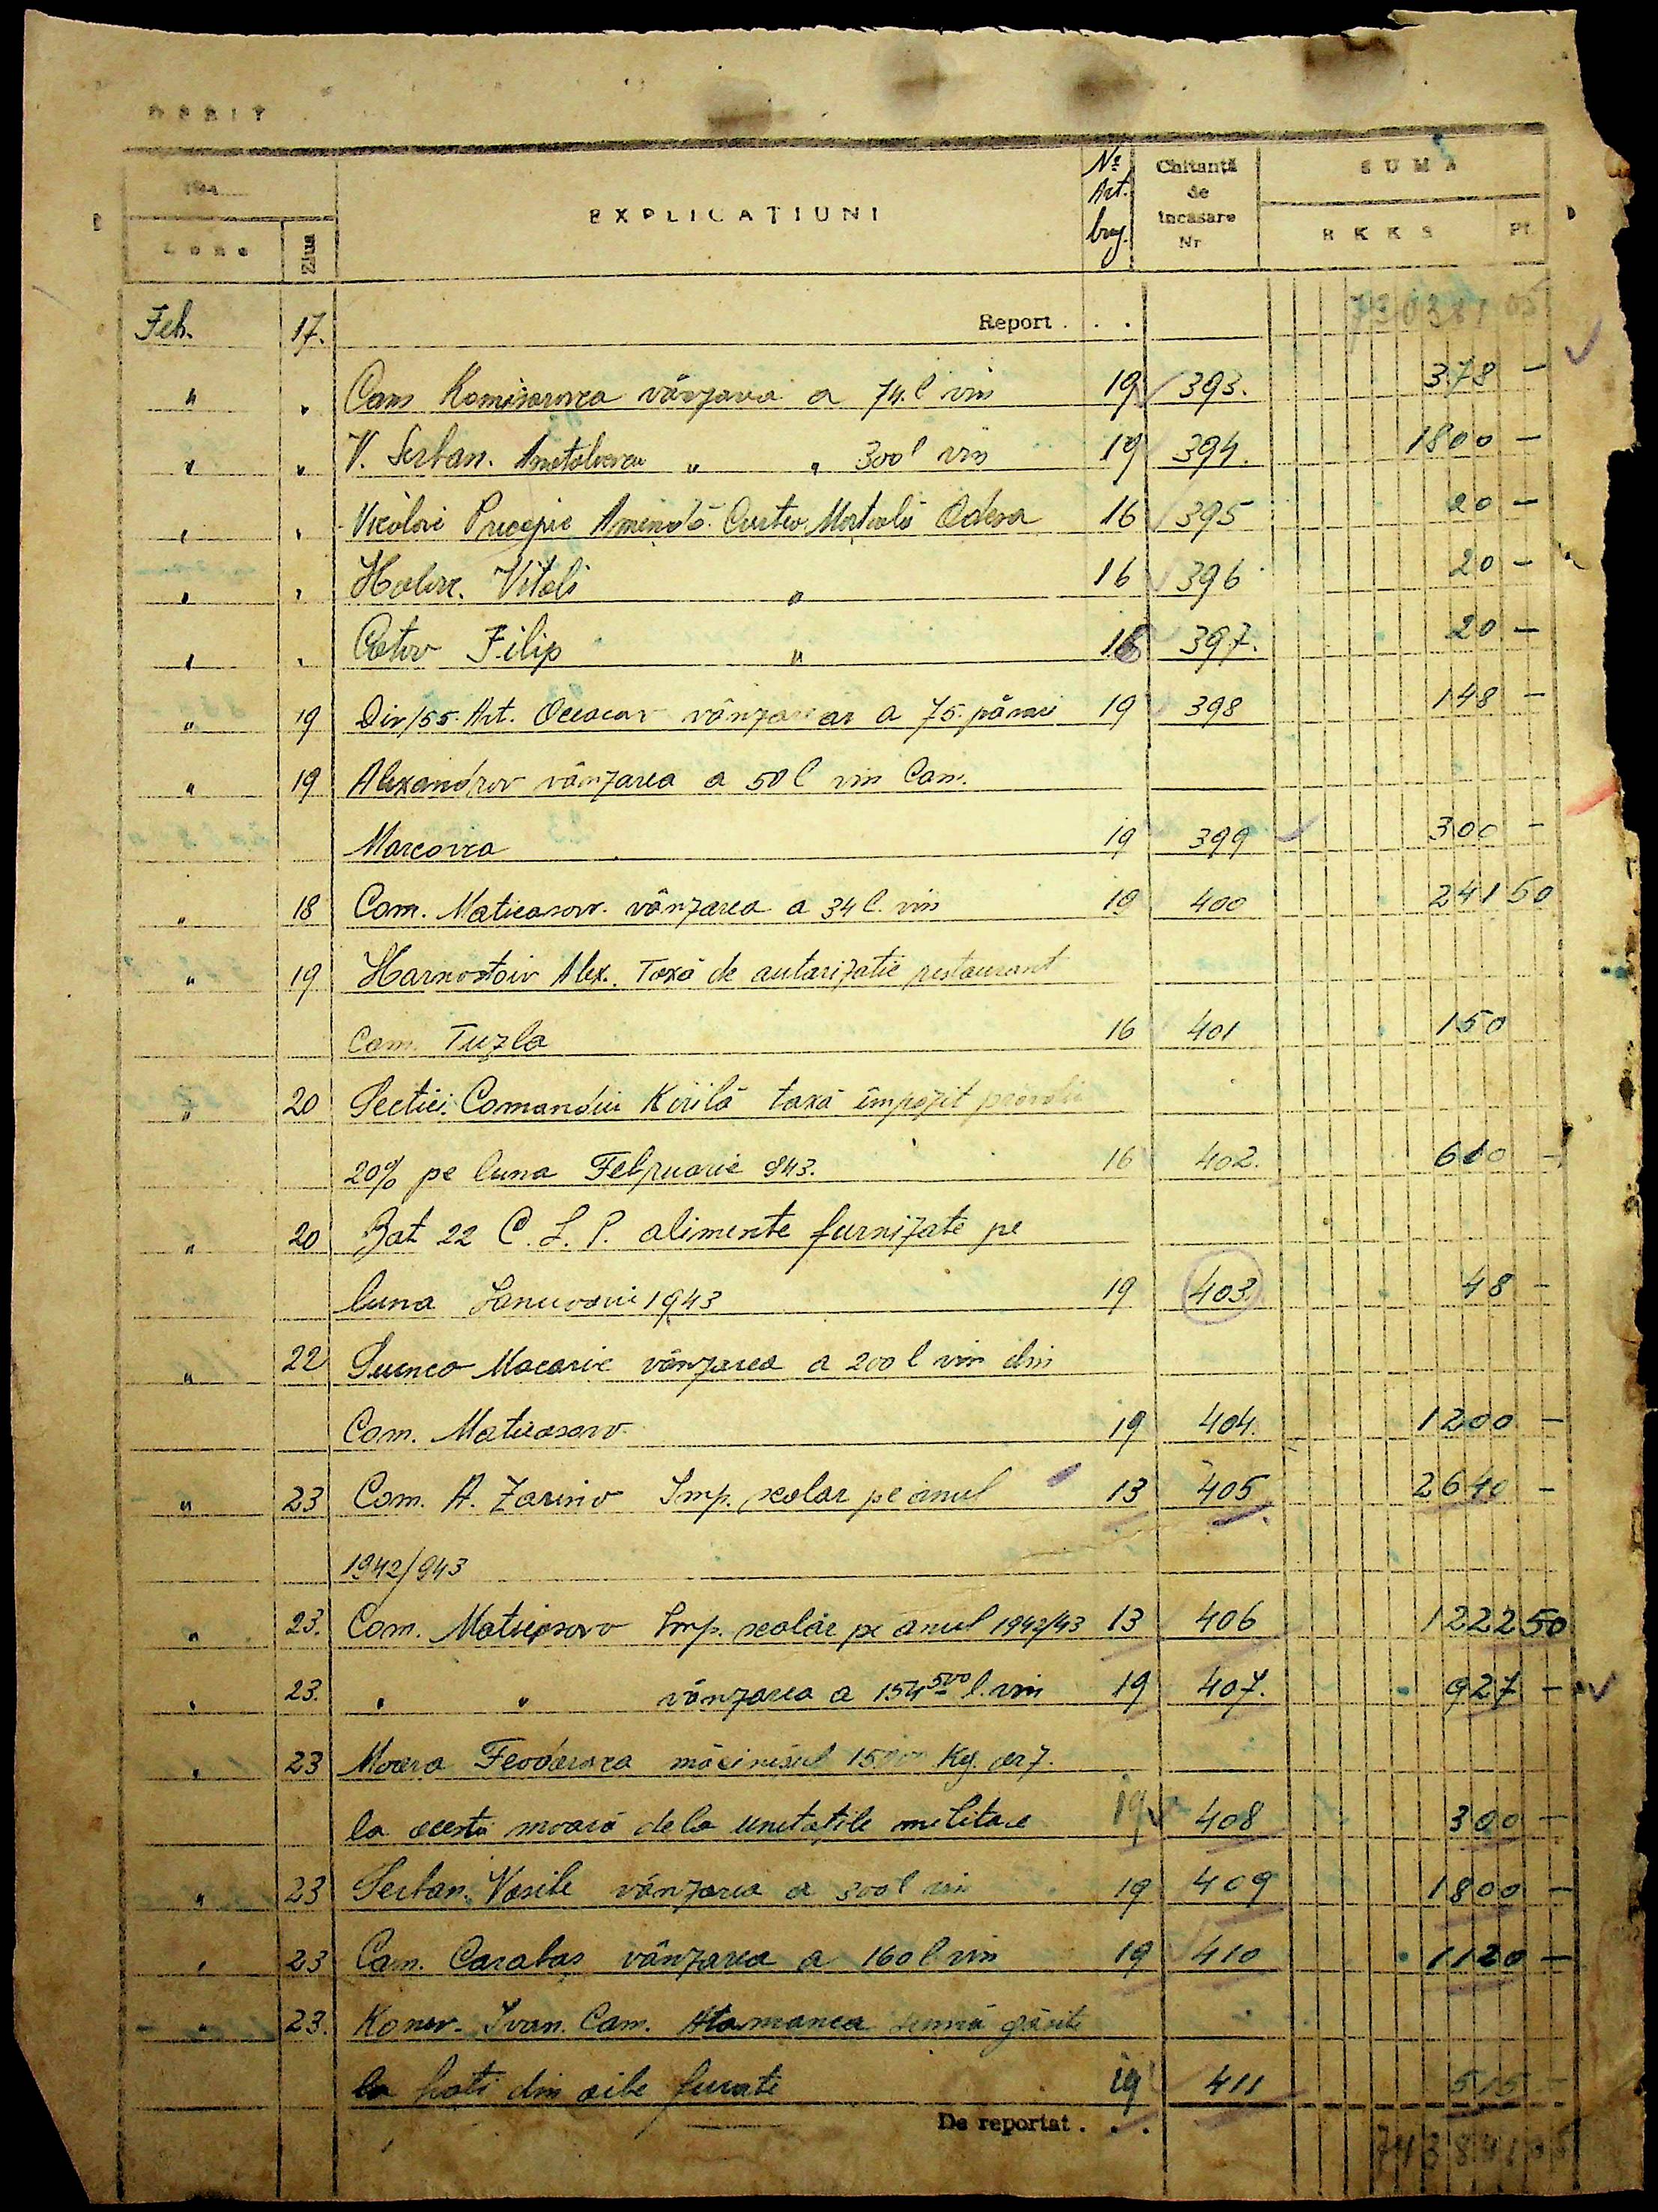 DEBIT
194
EXPLICAȚIUNI
No Art. bug.
Chitanță de încasare Nr
SUMA
Luna Ziua
RKKS Pf.
Feb. 17. Report . . . 730381 05
" " Com Komisarovca vânzarea a 74 l vin 19 393. 378 -
" " V. Serban. " " 300 l vin 19 394. 1800 -
" " Procopie Amendă Curtea Marțială Odesa 16 395 20 -
" " Vitali " 16 396 20 -
" " Filip " 16 397. 20 -
" 19 Div/55. Art. Oceacov a 75 19 398 148 -
" 19 Alexandrov vânzarea a 50 l vin Com.
Marcovca 19 399 300 -
" 18 Com. Maticasovo vânzarea a 34 l. vin 19 400 241 50
" 19 Harnostaiv Alex. Taxă de autorizatie restaurant
Com. Tuzla 16 401 150
" 20 Sectiei Comandiei Kirilă taxă impozit
20% pe luna Februarie 943. 16 402. 610 -
" 20 Bat 22 alimente furnizate pe
luna Ianuarie 1943 19 403. 48 -
" 22 Macarie vânzarea a 200 l vin din
Com. Maticasovo 19 404. 1200 -
" 23 Com. A. Zarino Imp. scolar pe anul 13 405 2640 -
1942/943
" 23. Com. Maticasovo Imp. scolar pe anul 1942/43 13 406 1222 50
" 23. " " vânzarea a 154 500 l. vin 19 407. 927 -
" 23 Moara Feodorovca măcinisul Kg. orz
la acesta moară dela unitățile militare 19 408 300 -
" 23 Serban Vasile vânzarea a 300 l vin 19 409 1800 -
" 23 Com. Carabaș vânzarea a 160 l vin 19 410 1120 -
" 23. Ivan. Com. Atamanca găsite
la hoti din oile furate 19 411 515 -
De reportat . . . 743841 05